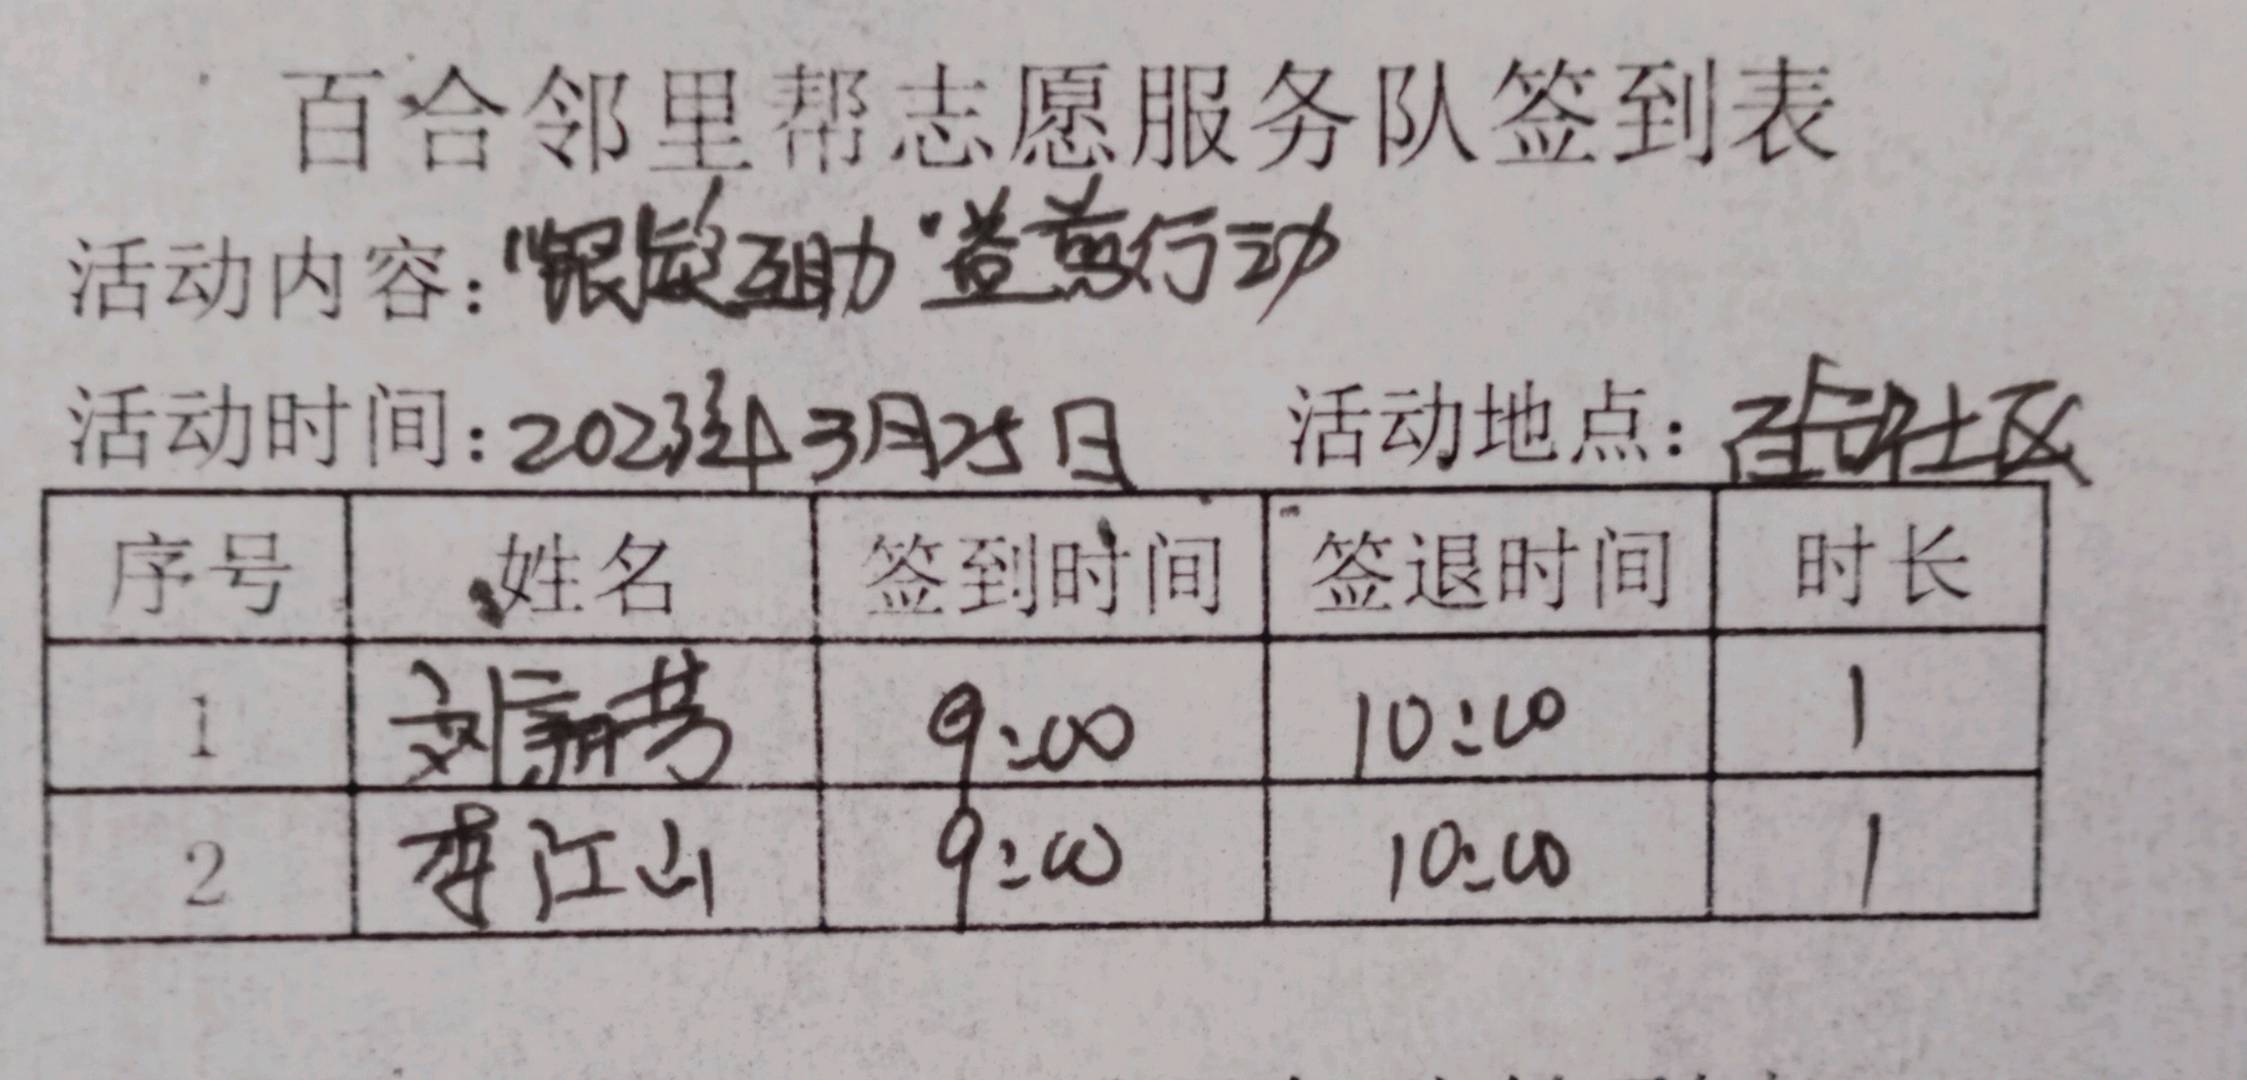 百合邻里帮志愿服务队签到表
活动内容：“银龄互助”益剪行动
活动时间：2023年3月25日 活动地点：百合社区
序号 姓名 签到时间 签退时间 时长
1 刘新芳 9:00 10:00 1
2 李江山 9:00 10:00 1